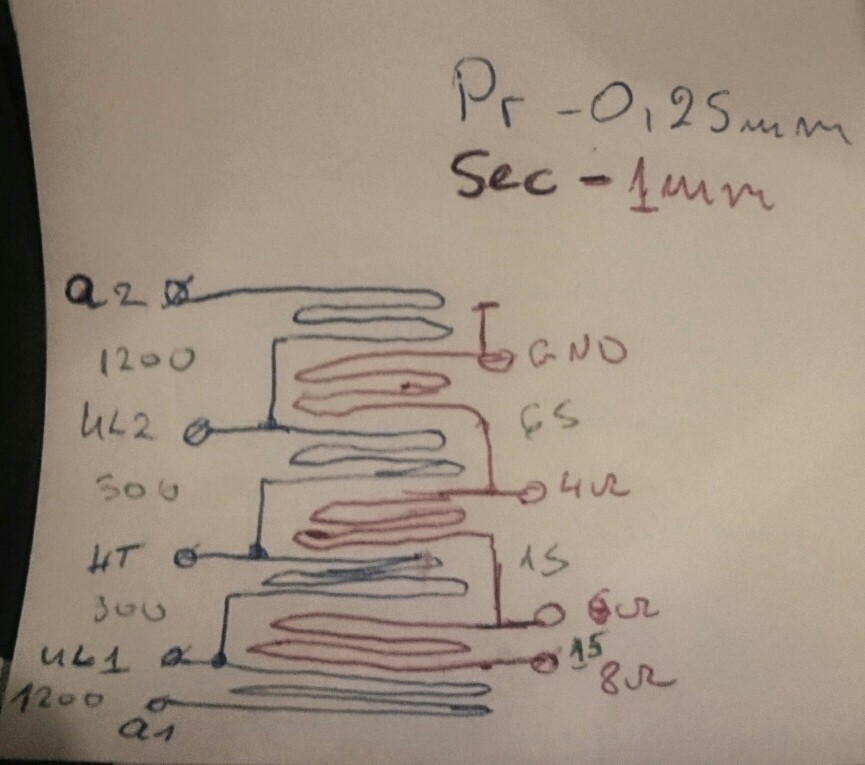 Pr - 0,25mm
Sec - 1mm
a2
1200
GND
UL2
65
300
4Ω
HT
15
300
6Ω
UL1
15
8Ω
1200
a1